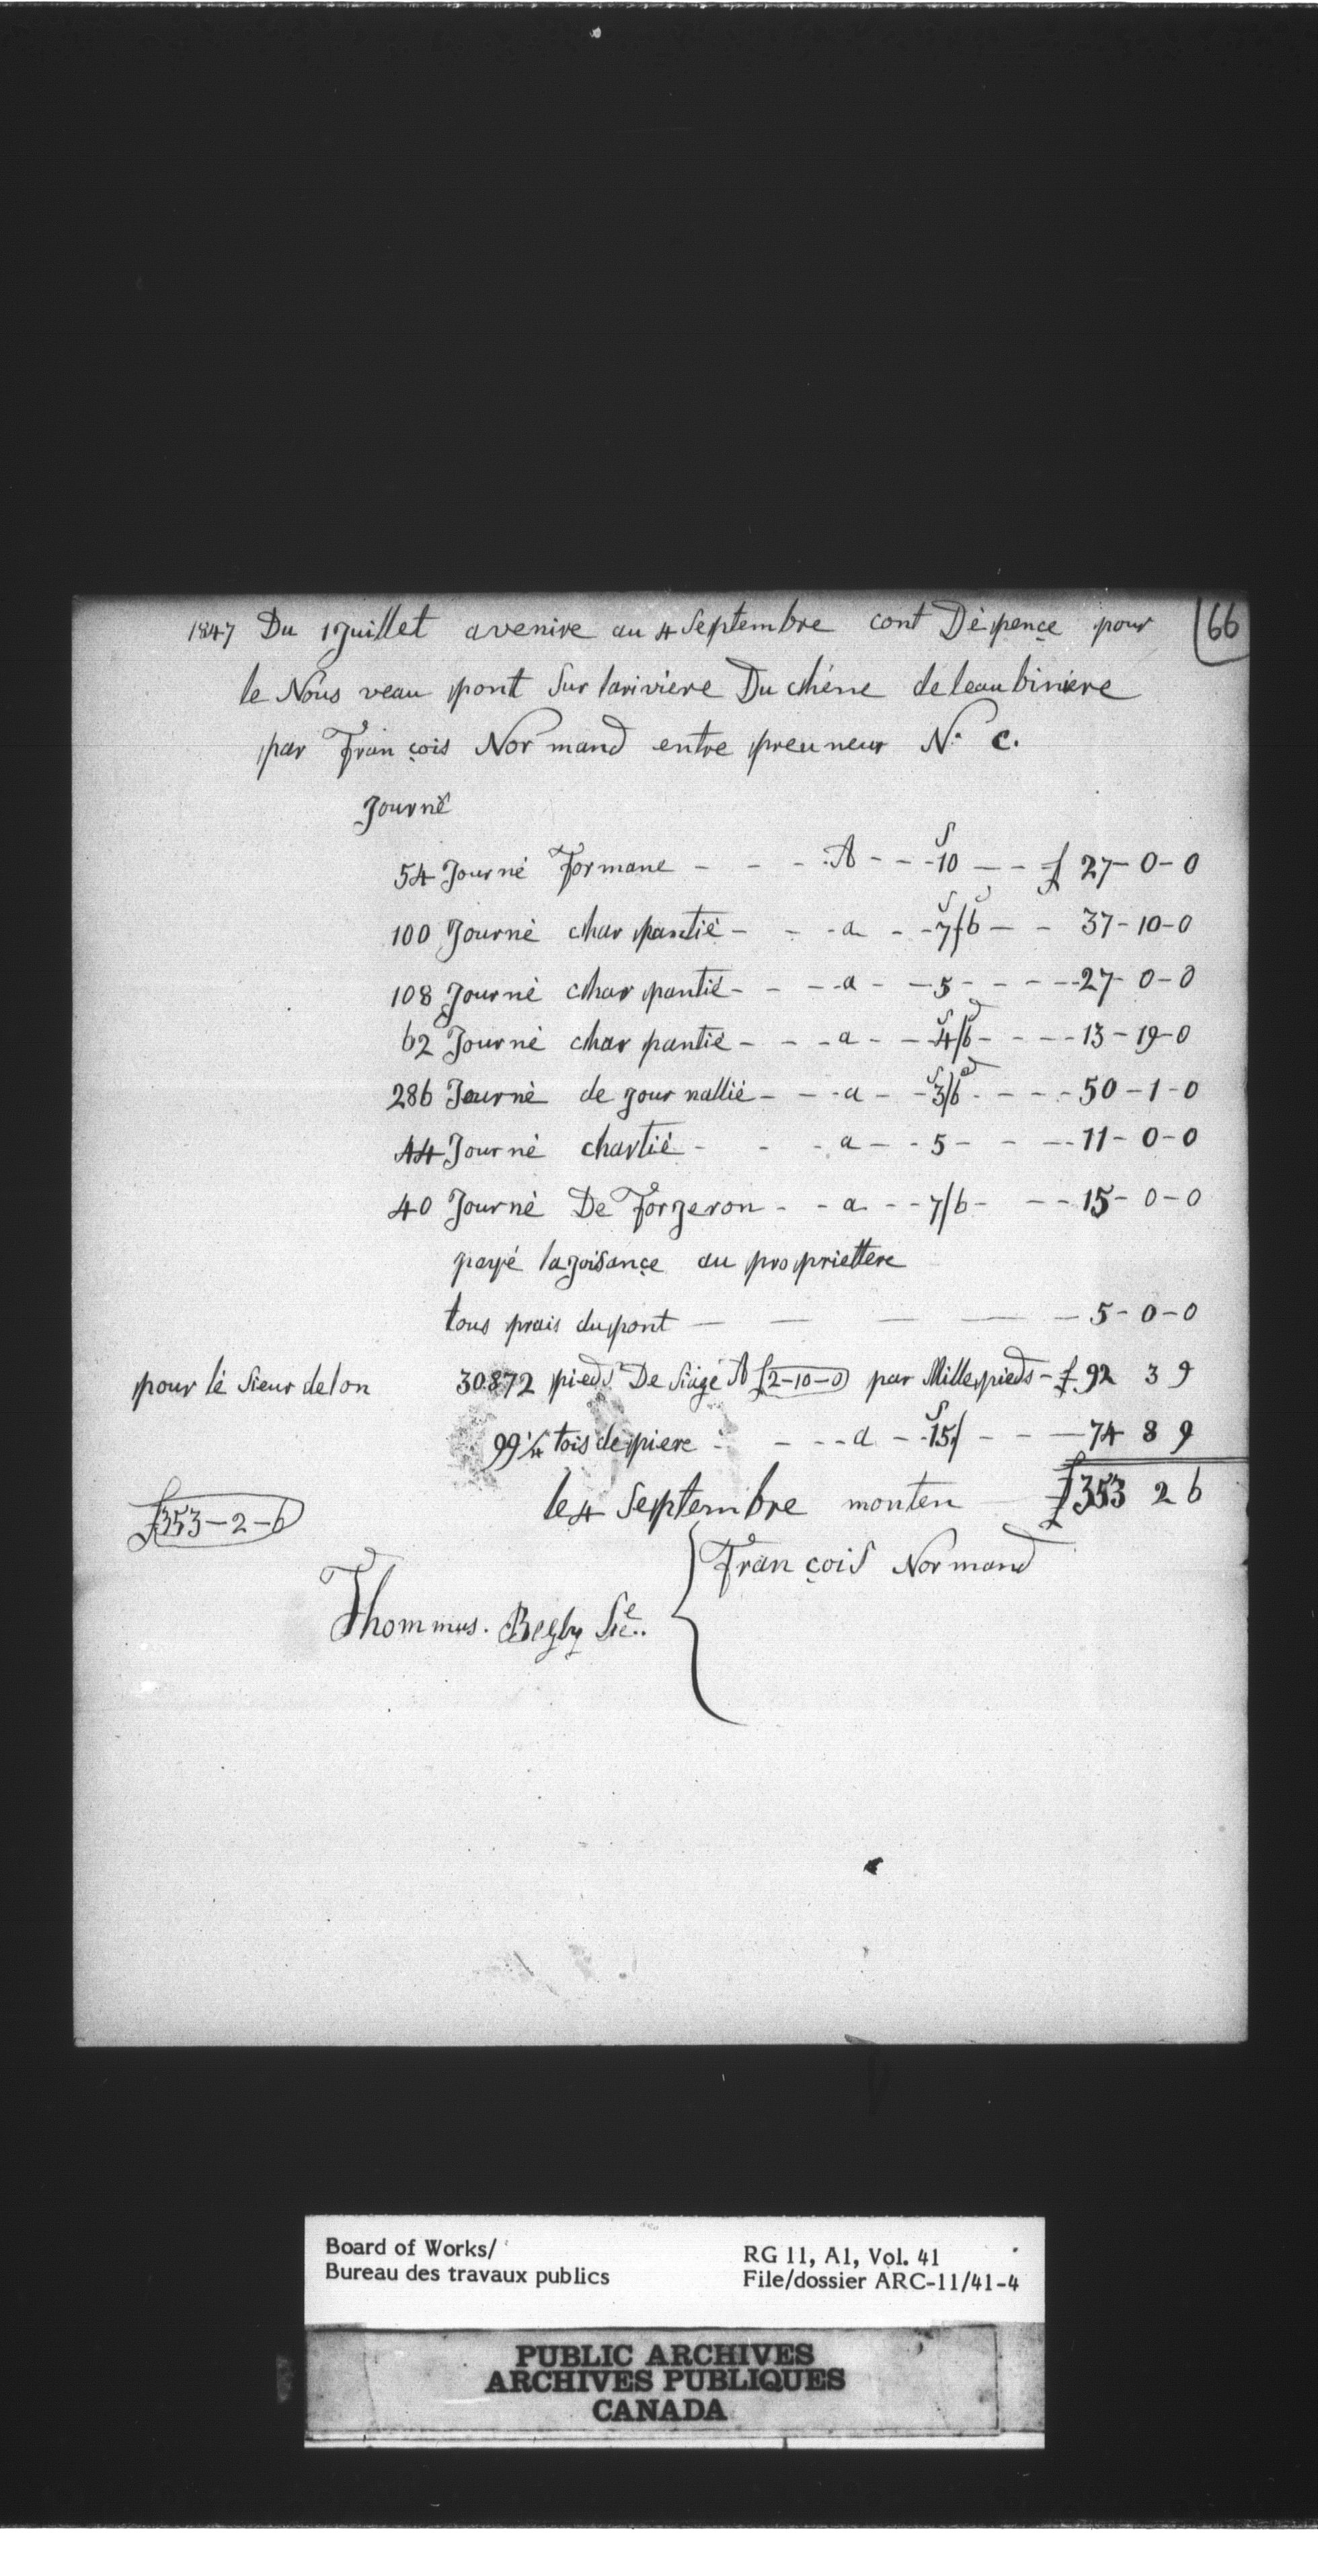 66
1847 Du 1 Juillet avenire au 4 Septembre cont Dépençe pour
le Nous veau pont Sur lariviere Du chéne deleaubiniere
par Fran çois Nor mand entre preuneur No. C.
Journé
54 Journé Formane - - - A - - 10 S — - £ 27-0-0
100 Journé char pantié - - - a - - 7/6 — - 37-10-0
108 Journé char pantié - - - a - - 5 - - - - 27-0-0
62 Journé char pantié - - - a - - 4/6 - - - - 13-19-0
286 Journé de jour nallié - - - a - - 3/6 - - - - 50-1-0
44 Journé chartié - - - a - - 5 - - - 11-0-0
40 Journé De Forgeron - - a - - 7/6 - - - 15-0-0
payé lajoisançe au propriettere
tous prais dupont — — — — 5-0-0
pour lé Sieur delon 30872 pieds De Siage A £2-10-0 par Mille pieds - £ 92 3 9
99 1/4 tois de piere - - - - a - - 15/ - - — 74 8 9
le 4 Septembre monten £353 2 6
£353-2-6
Fran çois Nor mand
Thommas. Begly
Board of Works/
Bureau des travaux publics
RG 11, A1, Vol. 41
File/dossier ARC-11/41-4
PUBLIC ARCHIVES
ARCHIVES PUBLIQUES
CANADA